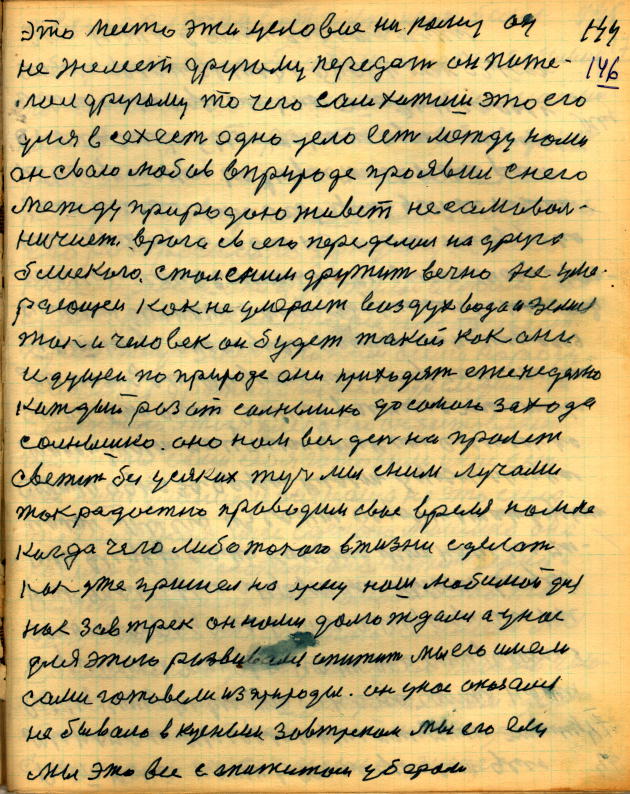 это место эти условие на рому он 144
не желает другому передат он поже- 146
лал другому то чего сам хотит это его
для всех ест одно дело ест между нами
он свою любов в природе проявил с него
между природаю живет не самовол-
ничиет. врага св его переделал на друга
близкого. стал сним дружит вечно не уми
рающеи как не умерает воздух вода и земля
так и человек он будет такой как они
идущеи по природе они приходят еженедевно
каждый раз от солнышко до самого захода
солнышко. оно нам вес ден на пролет
светит без усяких туч мы сним лучами
так радостно праводим свое время нам не
когда чего либо токого в жизни сделат
как уже пришел на цену наш любимой дух
нас завтрек он нами долго ждали а у нас
для этого развивали апитит мы его имели
сами готовели из природы. он у нас оказался
не бывало вкусныи завтреком мы его ели
мы это все с апажитом уберали